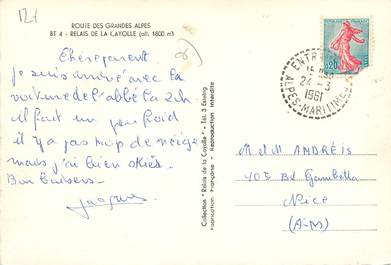 ROUTE DES GRANDES ALPES
BT 4 - RELAIS DE LA CAYOLLE (alt. 1800 m)
Chers parents
je suis arrivé avec la
voiture de l'abbé la 2ch
il fait un peu froid
il y a pas trop de neige
mais j'ai bien skiés.
Bon baisers-
Jacques
Collection "Relais de la Cayolle" - Tél. 3 Esteing
Fabrication Française - Reproduction interdite
0,20
24 - 3
1961
ALPES-MARITIMES
M et M ANDRÉIS
105 Bd Gambetta
Nice
(A-M)